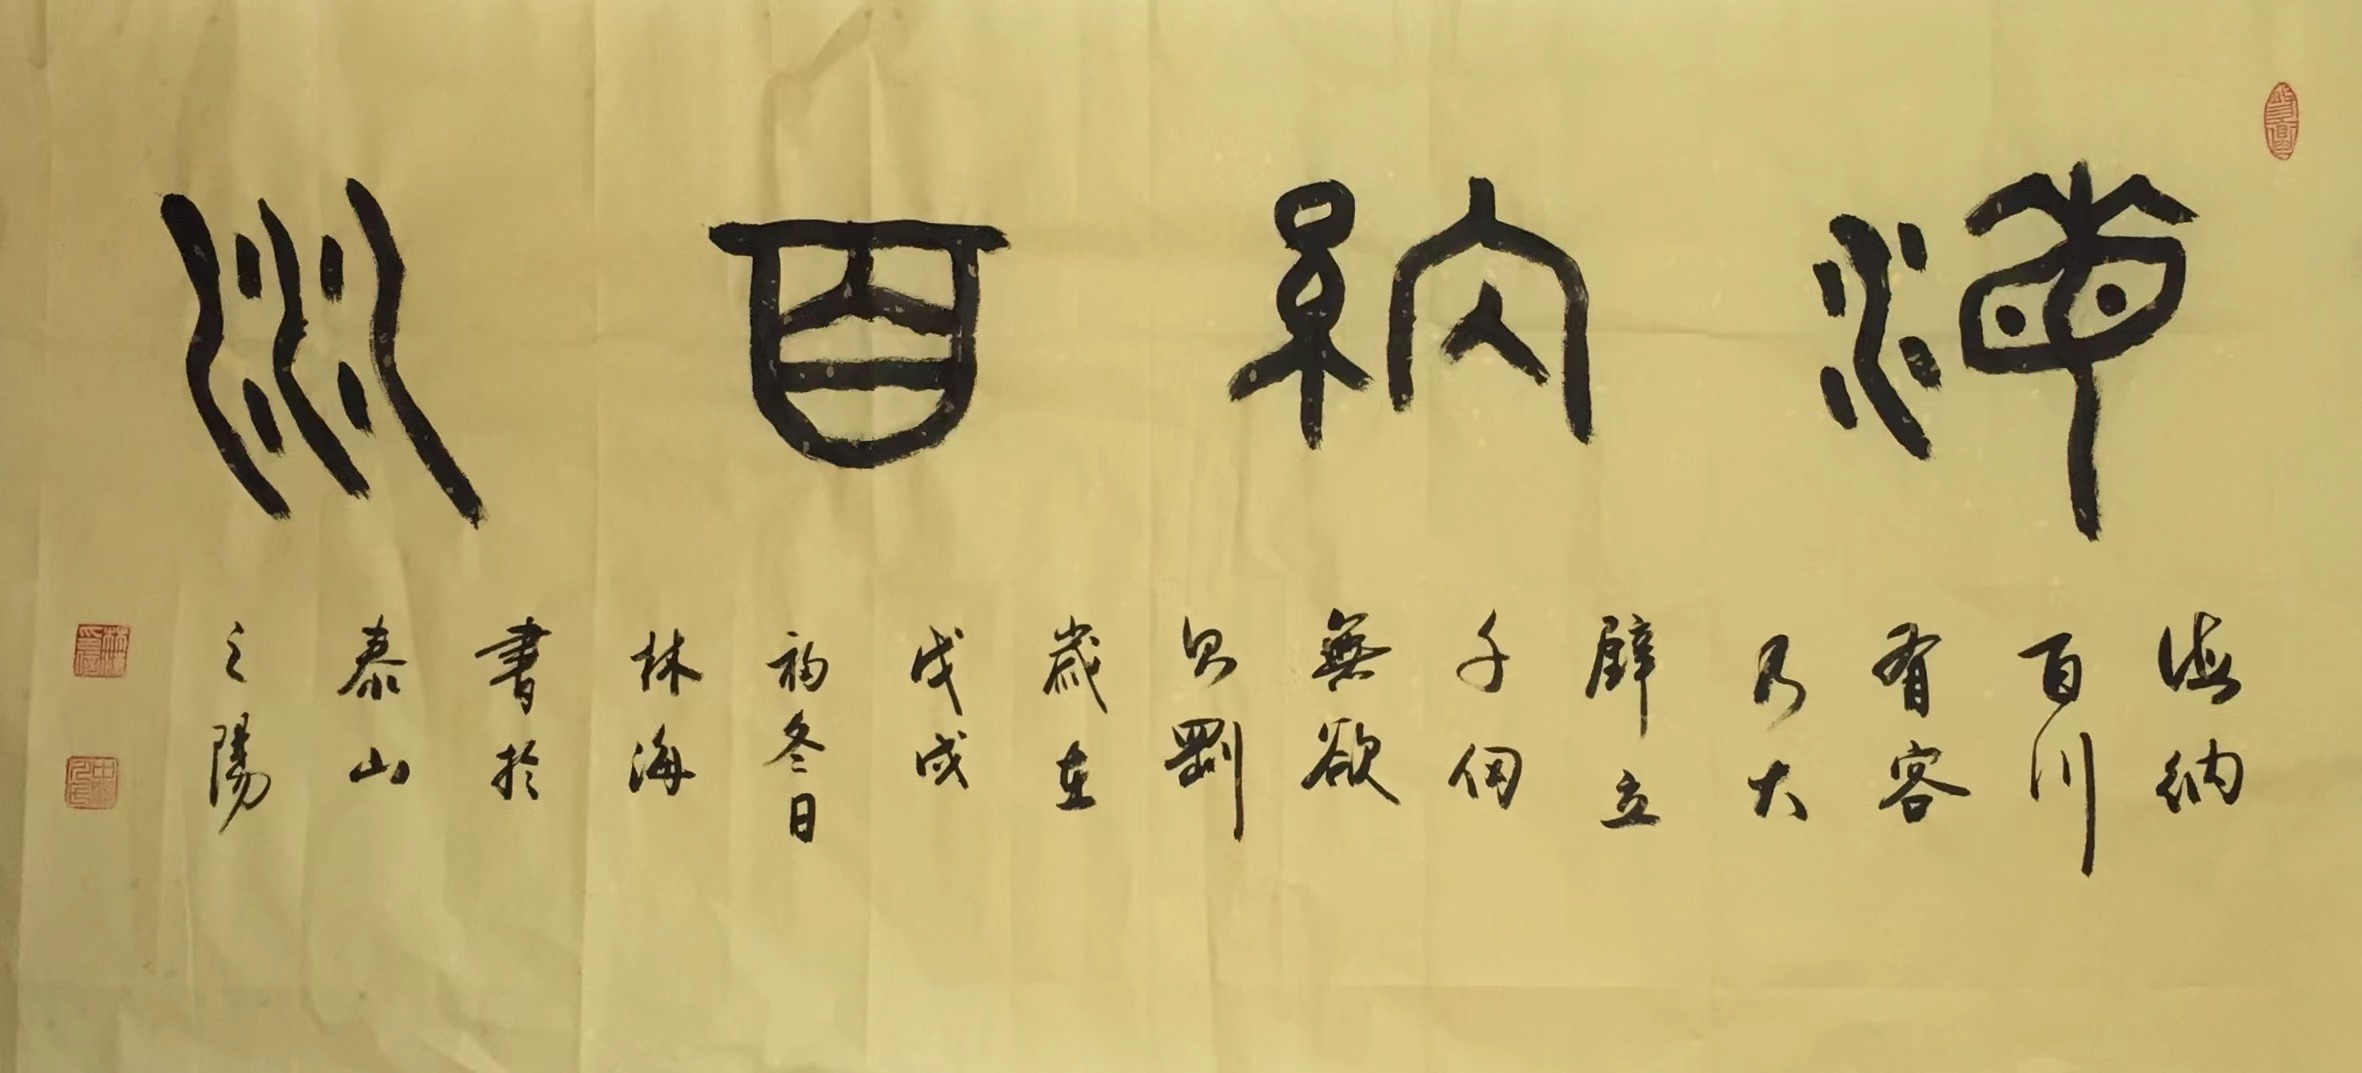 海納百川
海納
百川
有容
乃大
壁立
千仞
無欲
則剛
歲在
戊戌
初冬日
林海
書於
泰山
之陽